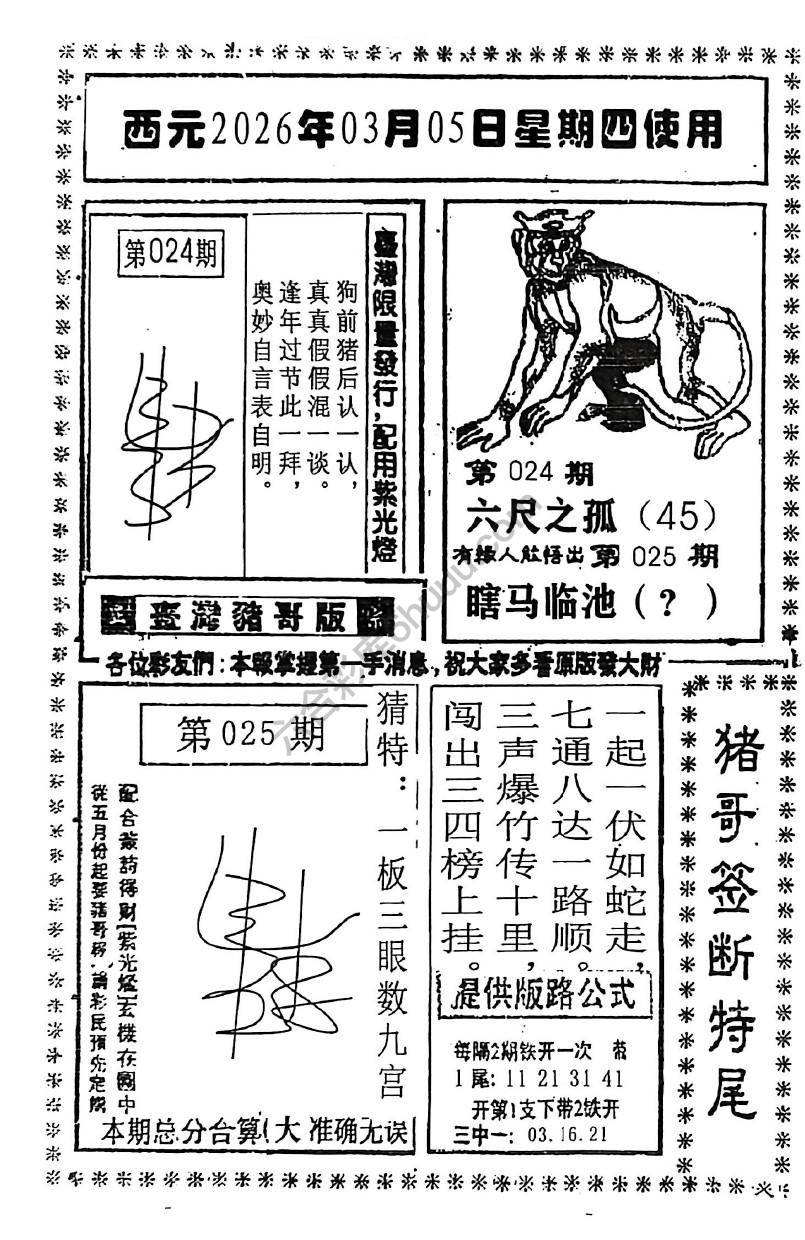 西元2026年03月05日星期四使用
第024期
臺灣限量發行,配用紫光燈
狗前猪后认一认,
真真假假混一谈。
逢年过节此一拜,
奥妙自言表自明。
第 024 期
六尺之孤（45）
有緣人能悟出 第 025 期
瞎马临池（?）
臺灣豬哥版
各位彩友們:本報掌握第一手消息,祝大家多看原版發大財
第 025 期
猜特：一板三眼数九宫
從五月份起要豬哥
本期总分合算(大 准确无误
一起一伏如蛇走,
七通八达一路顺。
三声爆竹传十里,
闯出三四榜上挂。
提供版路公式
每隔2期铁开一次
1尾: 11 21 31 41
开第1支下带2铁开
三中一: 03.16.21
猪哥签断特尾
六合彩库